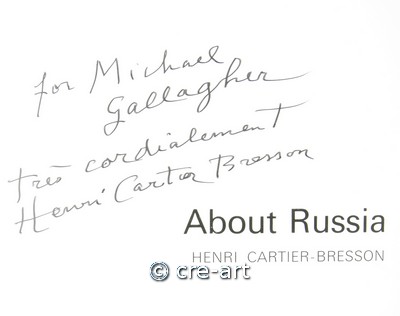 for Michael
Gallagher
très cordialement
Henri Cartier Bresson
About Russia
HENRI CARTIER-BRESSON
© cre-art